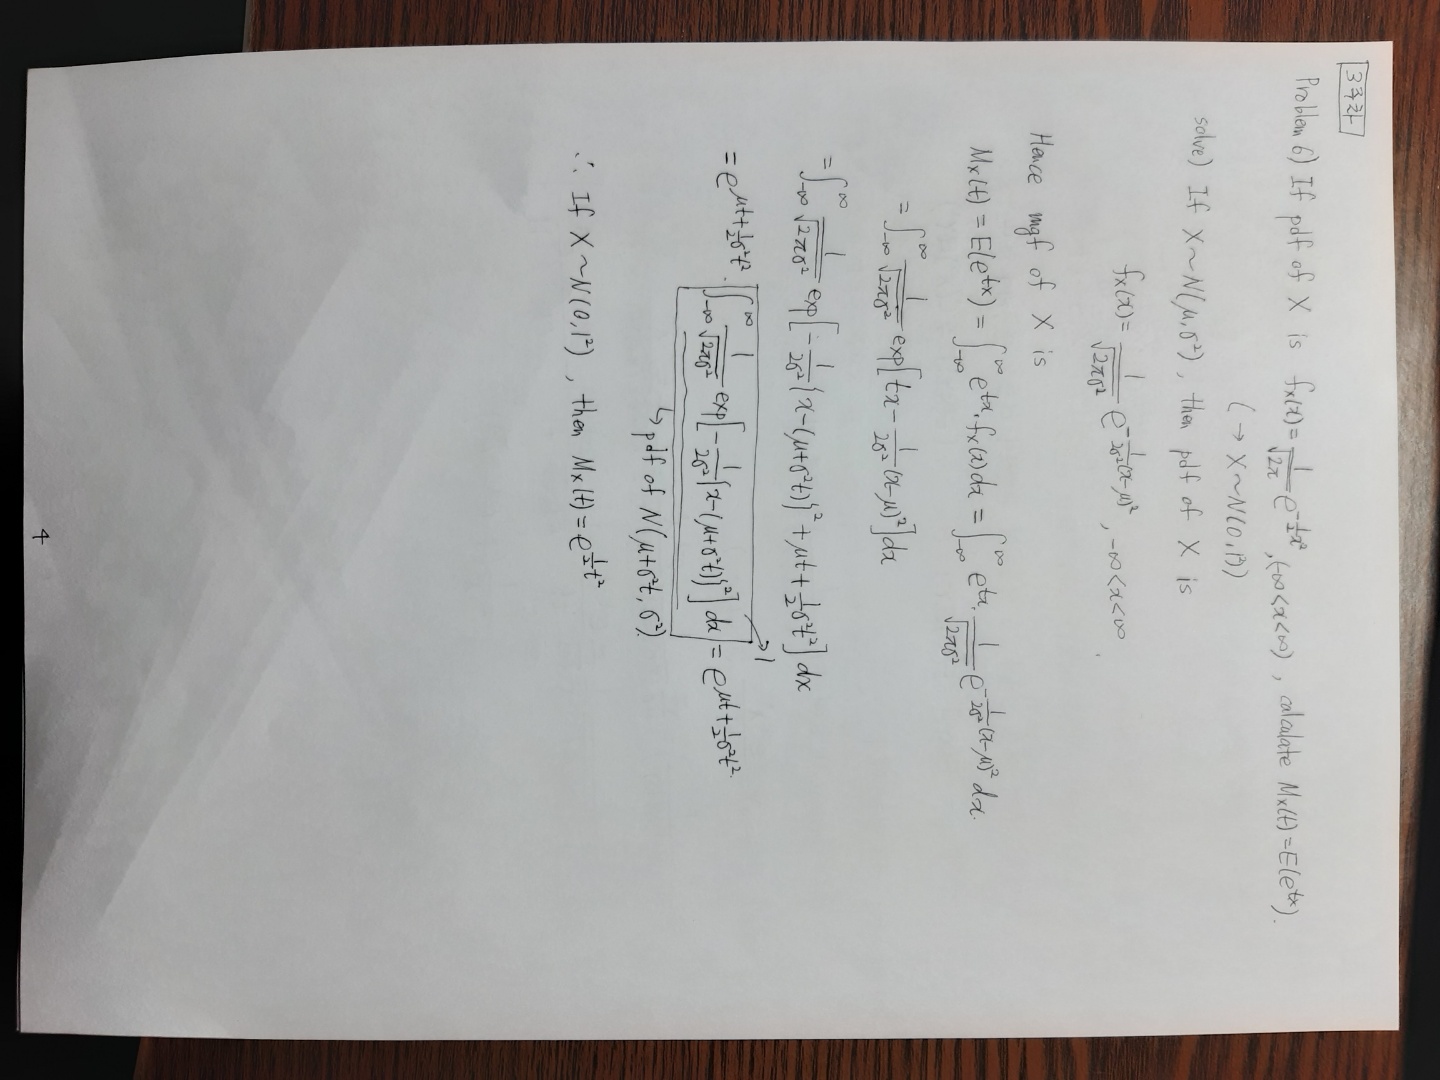 3주차
Problem 6) If pdf of X is fx(x)=1/√2π e^-½x², (-∞<x<∞), calculate Mx(t)=E(e^tx).
(→ X~N(0,1²))
solve) If X~N(μ,σ²), then pdf of X is
fx(x)= 1/√2πσ² e^-1/2σ²(x-μ)², -∞<x<∞.
Hence mgf of X is
Mx(t) = E(e^tx) = ∫_-∞^∞ e^tx·fx(x)dx = ∫_-∞^∞ e^tx· 1/√2πσ² e^-1/2σ²(x-μ)² dx.
= ∫_-∞^∞ 1/√2πσ² exp[tx - 1/2σ²(x-μ)²]dx
= ∫_-∞^∞ 1/√2πσ² exp[-1/2σ²{x-(μ+σ²t)}² + μt + ½σ²t²] dx
= e^μt+½σ²t² · ∫_-∞^∞ 1/√2πσ² exp[-1/2σ²{x-(μ+σ²t)}²] dx → 1 = e^μt+½σ²t².
↳ pdf of N(μ+σ²t, σ²).
∴ If X~N(0,1²), then Mx(t) = e^½t²
4